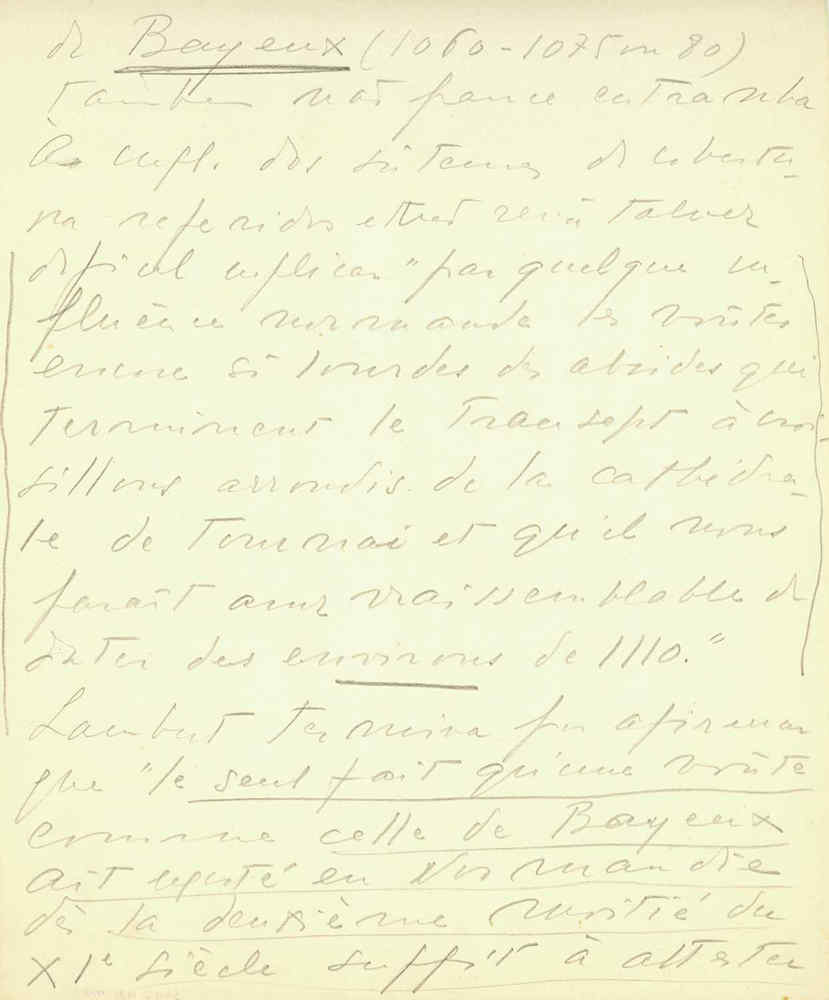 de Bayeux (1060-1075 ou 80)
tambem nos parece entranha
A infl. dos sistemas de cobertu-
ra referidos ethes será talvez
dificil explicar "par quelque in-
fluence normande les voûtes
encore si lourdes des absides qui
terminent le transept à croi-
sillons arrondis de la cathédra-
le de Tournai et qu'il nous
parait assez vraissemblable de
dater des environs de 1110."
Lambert termina por afirmar
que "le seul fait qu'une voûte
comme celle de Bayeux
ait existé en Normandie
dès la deuxième moitié du
XIe siècle suffit à attester